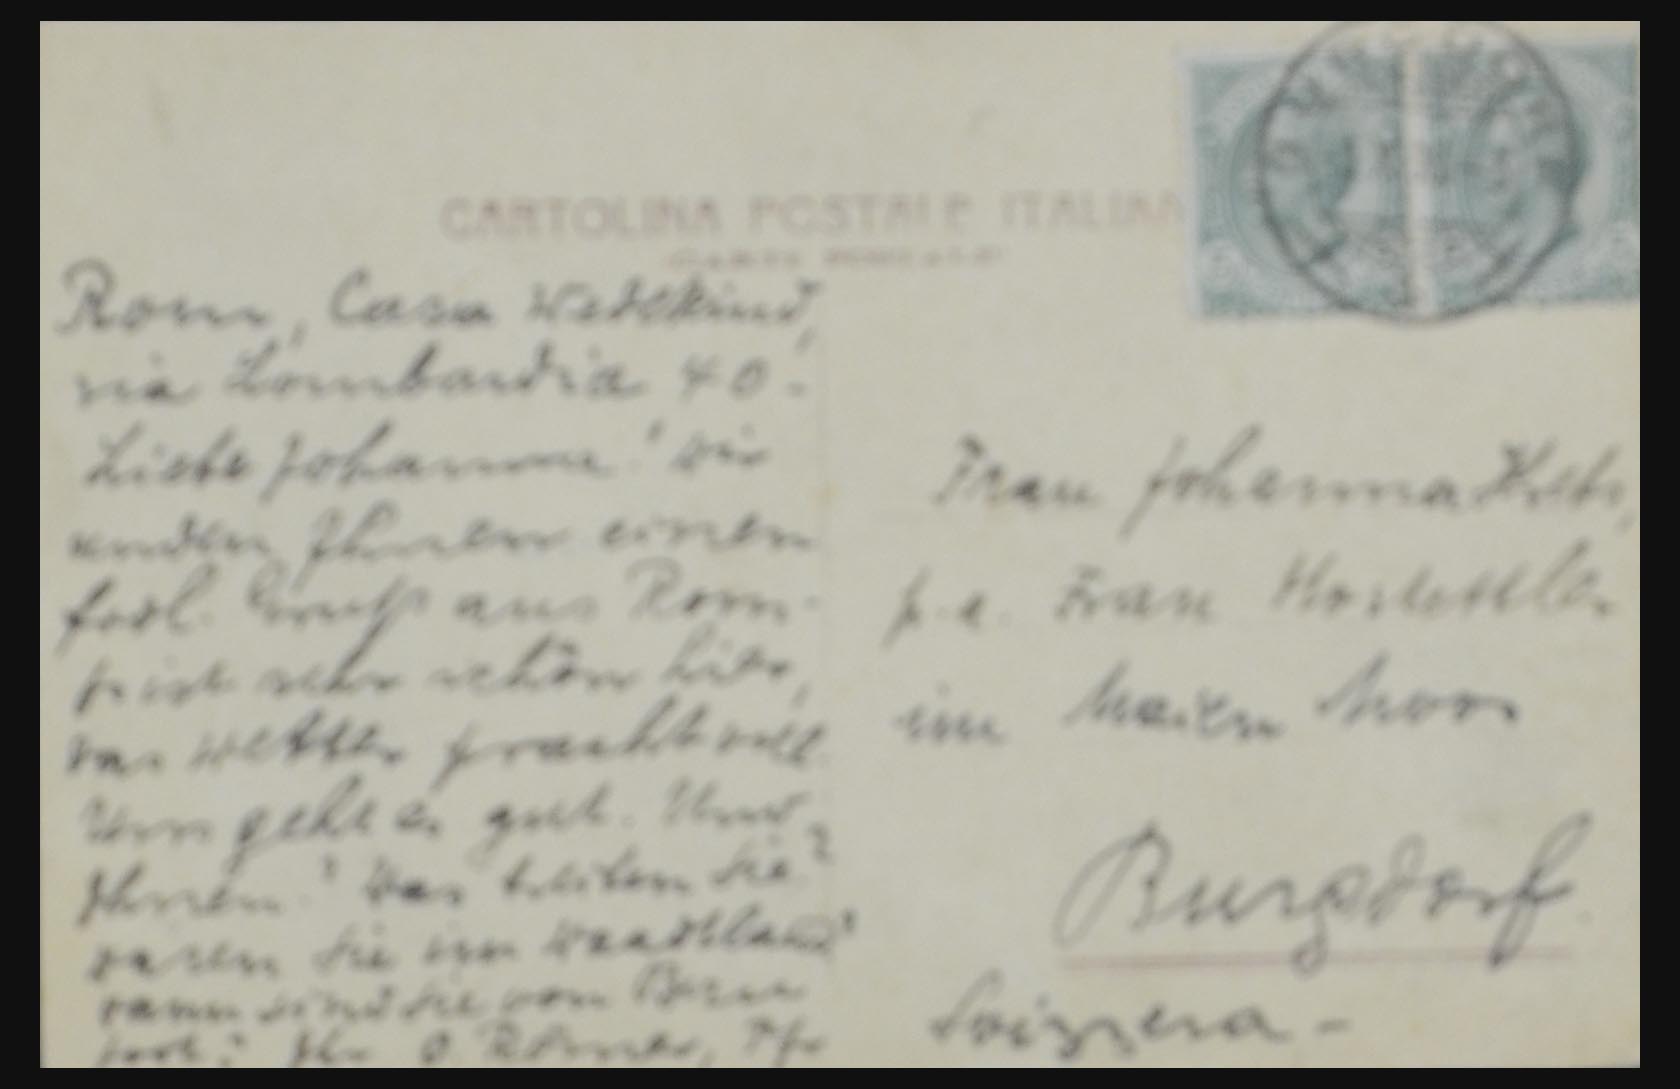 CARTOLINA POSTALE ITALIANA
Rom, Casa Wedekind,
via Lombardia 40 -
Liebe Johanna! Wir
senden Ihnen einen
frdl. Gruß aus Rom.
Es ist sehr schön hier,
das Wetter prachtvoll.
Uns geht es gut. Und
Ihnen? Was treiben Sie?
waren Sie im Waadtland?
wann sind Sie von Bern
fort? Ihr O. Römer, Pfr
Frau Johanna
p. a. Frau Hostettler
im Meien Moos
Burgdorf
Svizzera -